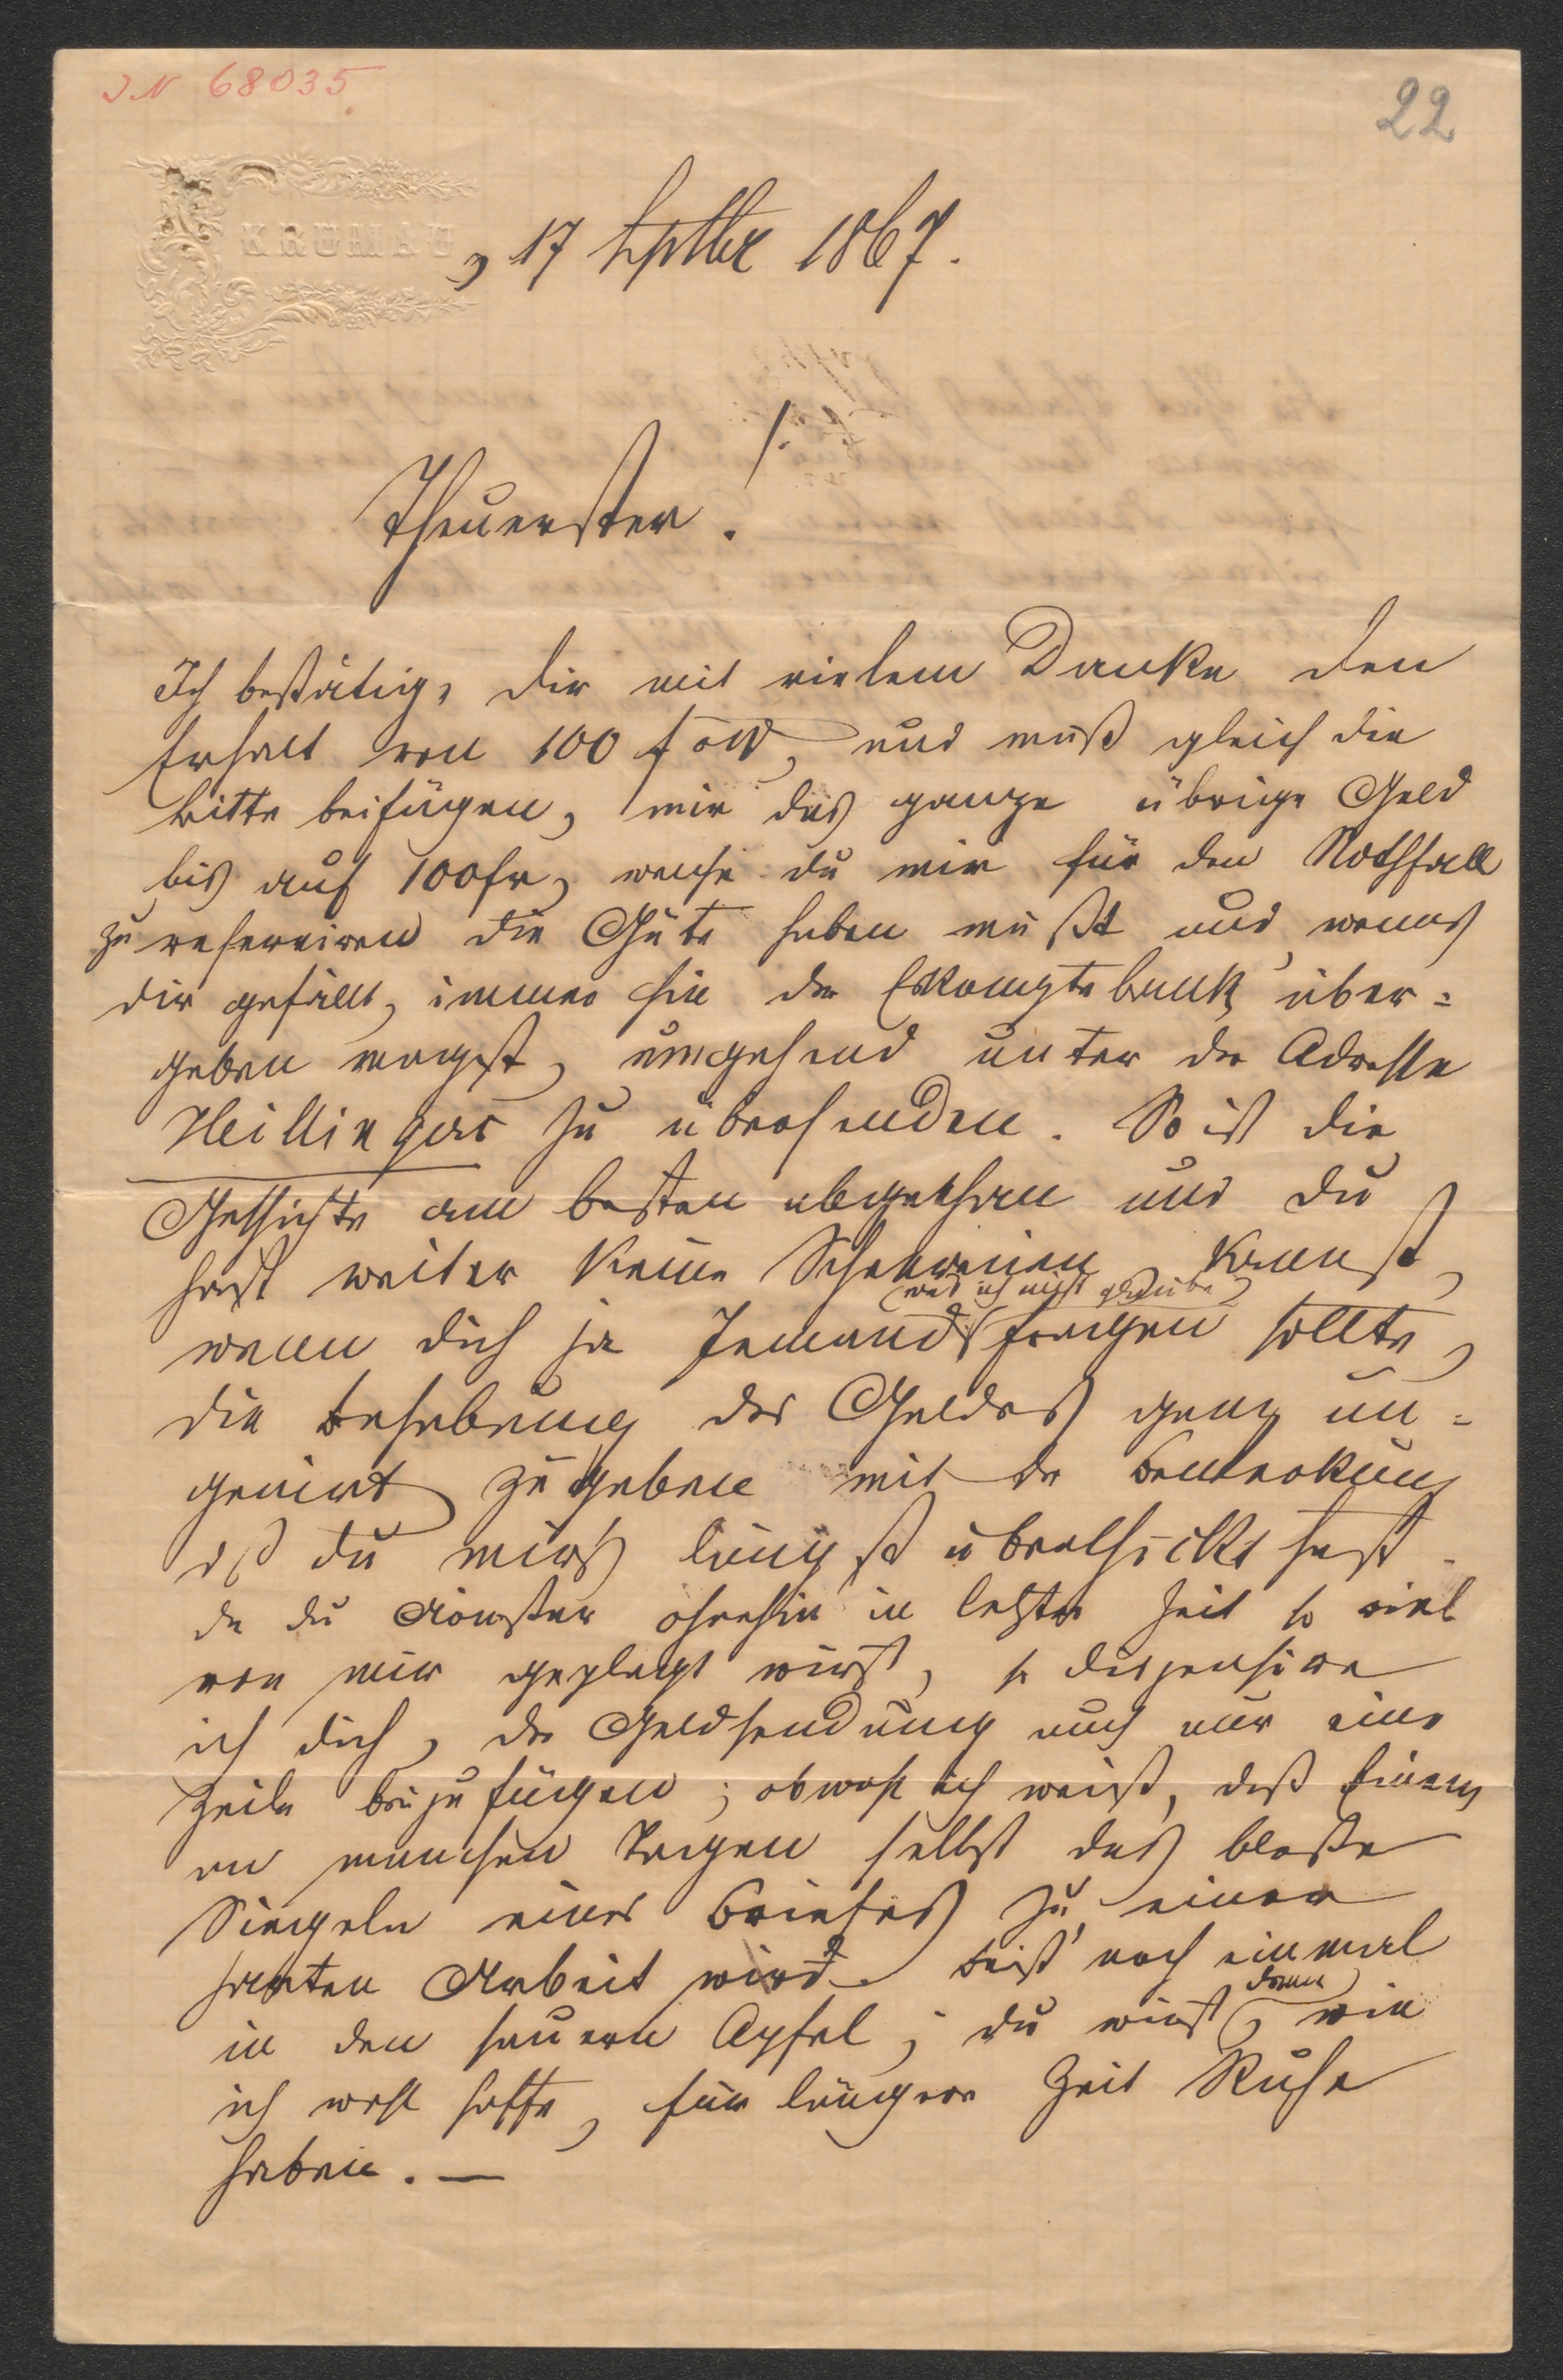 IN 68035
22
KRUMAU
, 17 Septbr 1867.
Theuerster!
Ich bestätige dir mit vielem Danke den
Erhalt von 100 f öW, und muß gleich die
Bitte beifügen, mir das ganze übrige Geld
bis auf 100 fr, welche du mir für den Nothfall
zu reserviren die Güte haben mußt und, wenns
dir gefällt, immer hin der Eskomptebank über=
geben magst, umgehend unter der Adresse
zu übersenden. So ist die
Geschichte am besten abgethan und du
hast weiter keine Scherereien, kannst,
(was ich nicht glaube)
wenn dich ja Jemand fragen sollte,
die Behebung des Geldes ganz un=
genirt zugeben mit der Bemerkung
dß du mirs längst überschickt hast.
da du Ärmster ohnehin in letzter Zeit so viel
von mir geplagt wirst, so dispensire
ich dich, der Geldsendung auch nur eine
Zeile beizufügen; obwohl ich weiß, daß Einem
an manchen Tagen selbst das bloße
Siegeln eines Briefes zu einer
harten Arbeit wird. Beiß' noch einmal
in den sauern Apfel; du wirst dann, wie
ich wohl hoffe, für längere Zeit Ruhe
haben. —